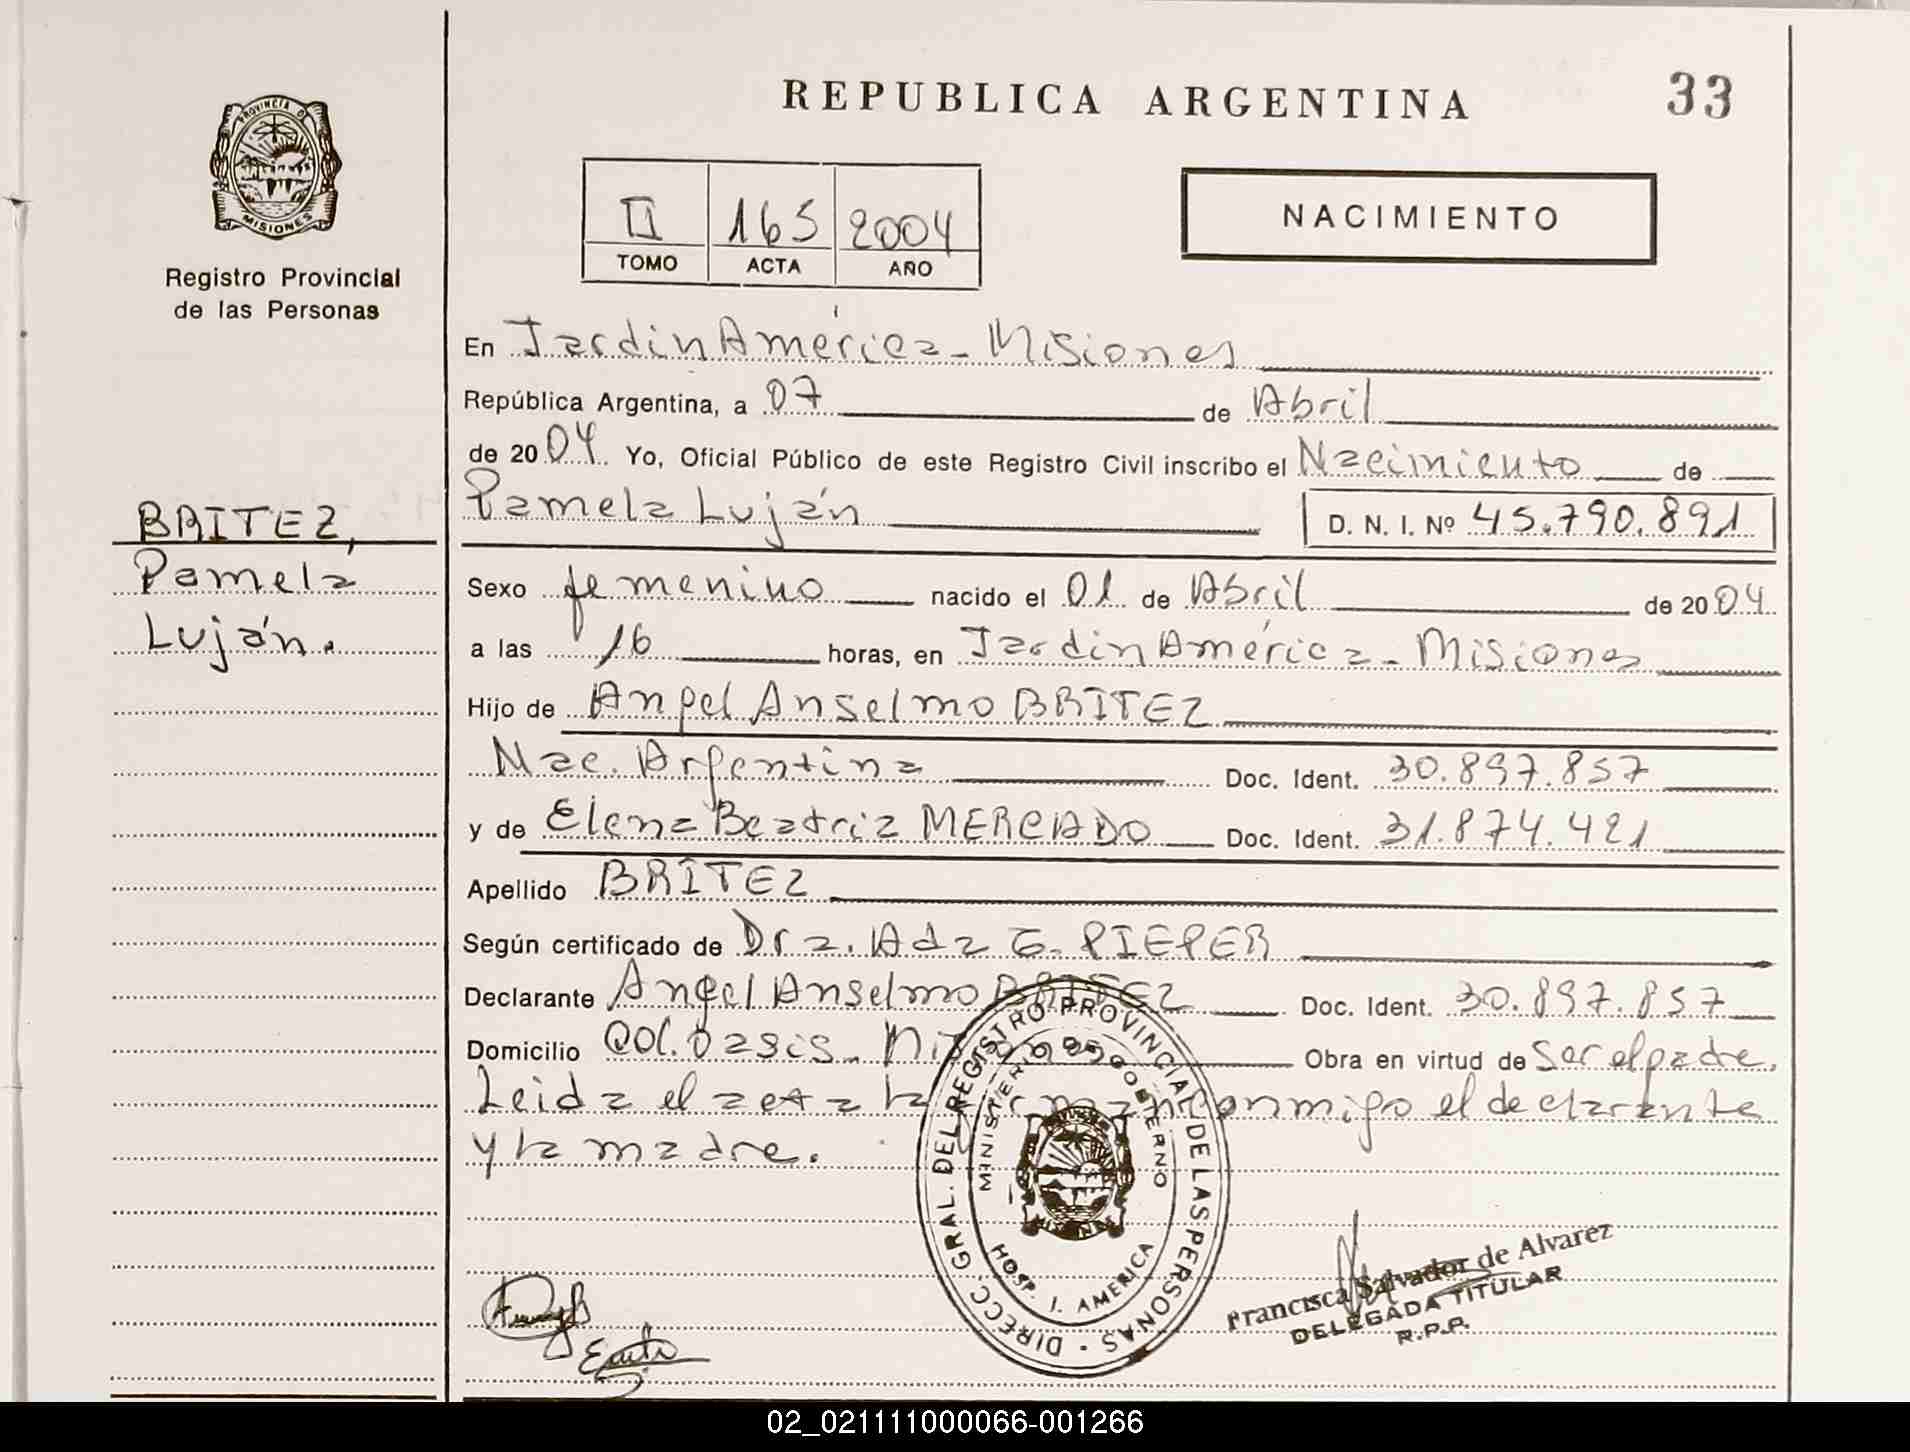 REPUBLICA ARGENTINA
33
PROVINCIA DE
MISIONES
Registro Provincial
de las Personas
II 165 2004
TOMO ACTA AÑO
NACIMIENTO
En Jardín América - Misiones
República Argentina, a 07 de Abril
de 2004. Yo, Oficial Público de este Registro Civil inscribo el Nacimiento de
Pamela Luján
D. N. I. Nº 45.790.891
BRITEZ,
Pamela
Luján.
Sexo femenino nacido el 01 de Abril de 2004
a las 16 horas, en Jardín América - Misiones
Hijo de Angel Anselmo BRITEZ
Nac. Argentina Doc. Ident. 30.897.857
y de Elena Beatriz MERCADO Doc. Ident. 31.874.421
Apellido BRITEZ
Según certificado de Dra. Ada G. PIEPER
Declarante Angel Anselmo BRITEZ Doc. Ident. 30.897.857
Domicilio Col. Oasis - Misiones Obra en virtud de Ser el padre.
Leida el acta la firman conmigo el declarante
y la madre.
DIRECC. GRAL. DEL REGISTRO PROVINCIAL DE LAS PERSONAS
MINISTERIO DE GOBIERNO
HOSP. J. AMERICA
Francisca Salvador de Alvarez
DELEGADA TITULAR
R.P.P.
02_021111000066-001266